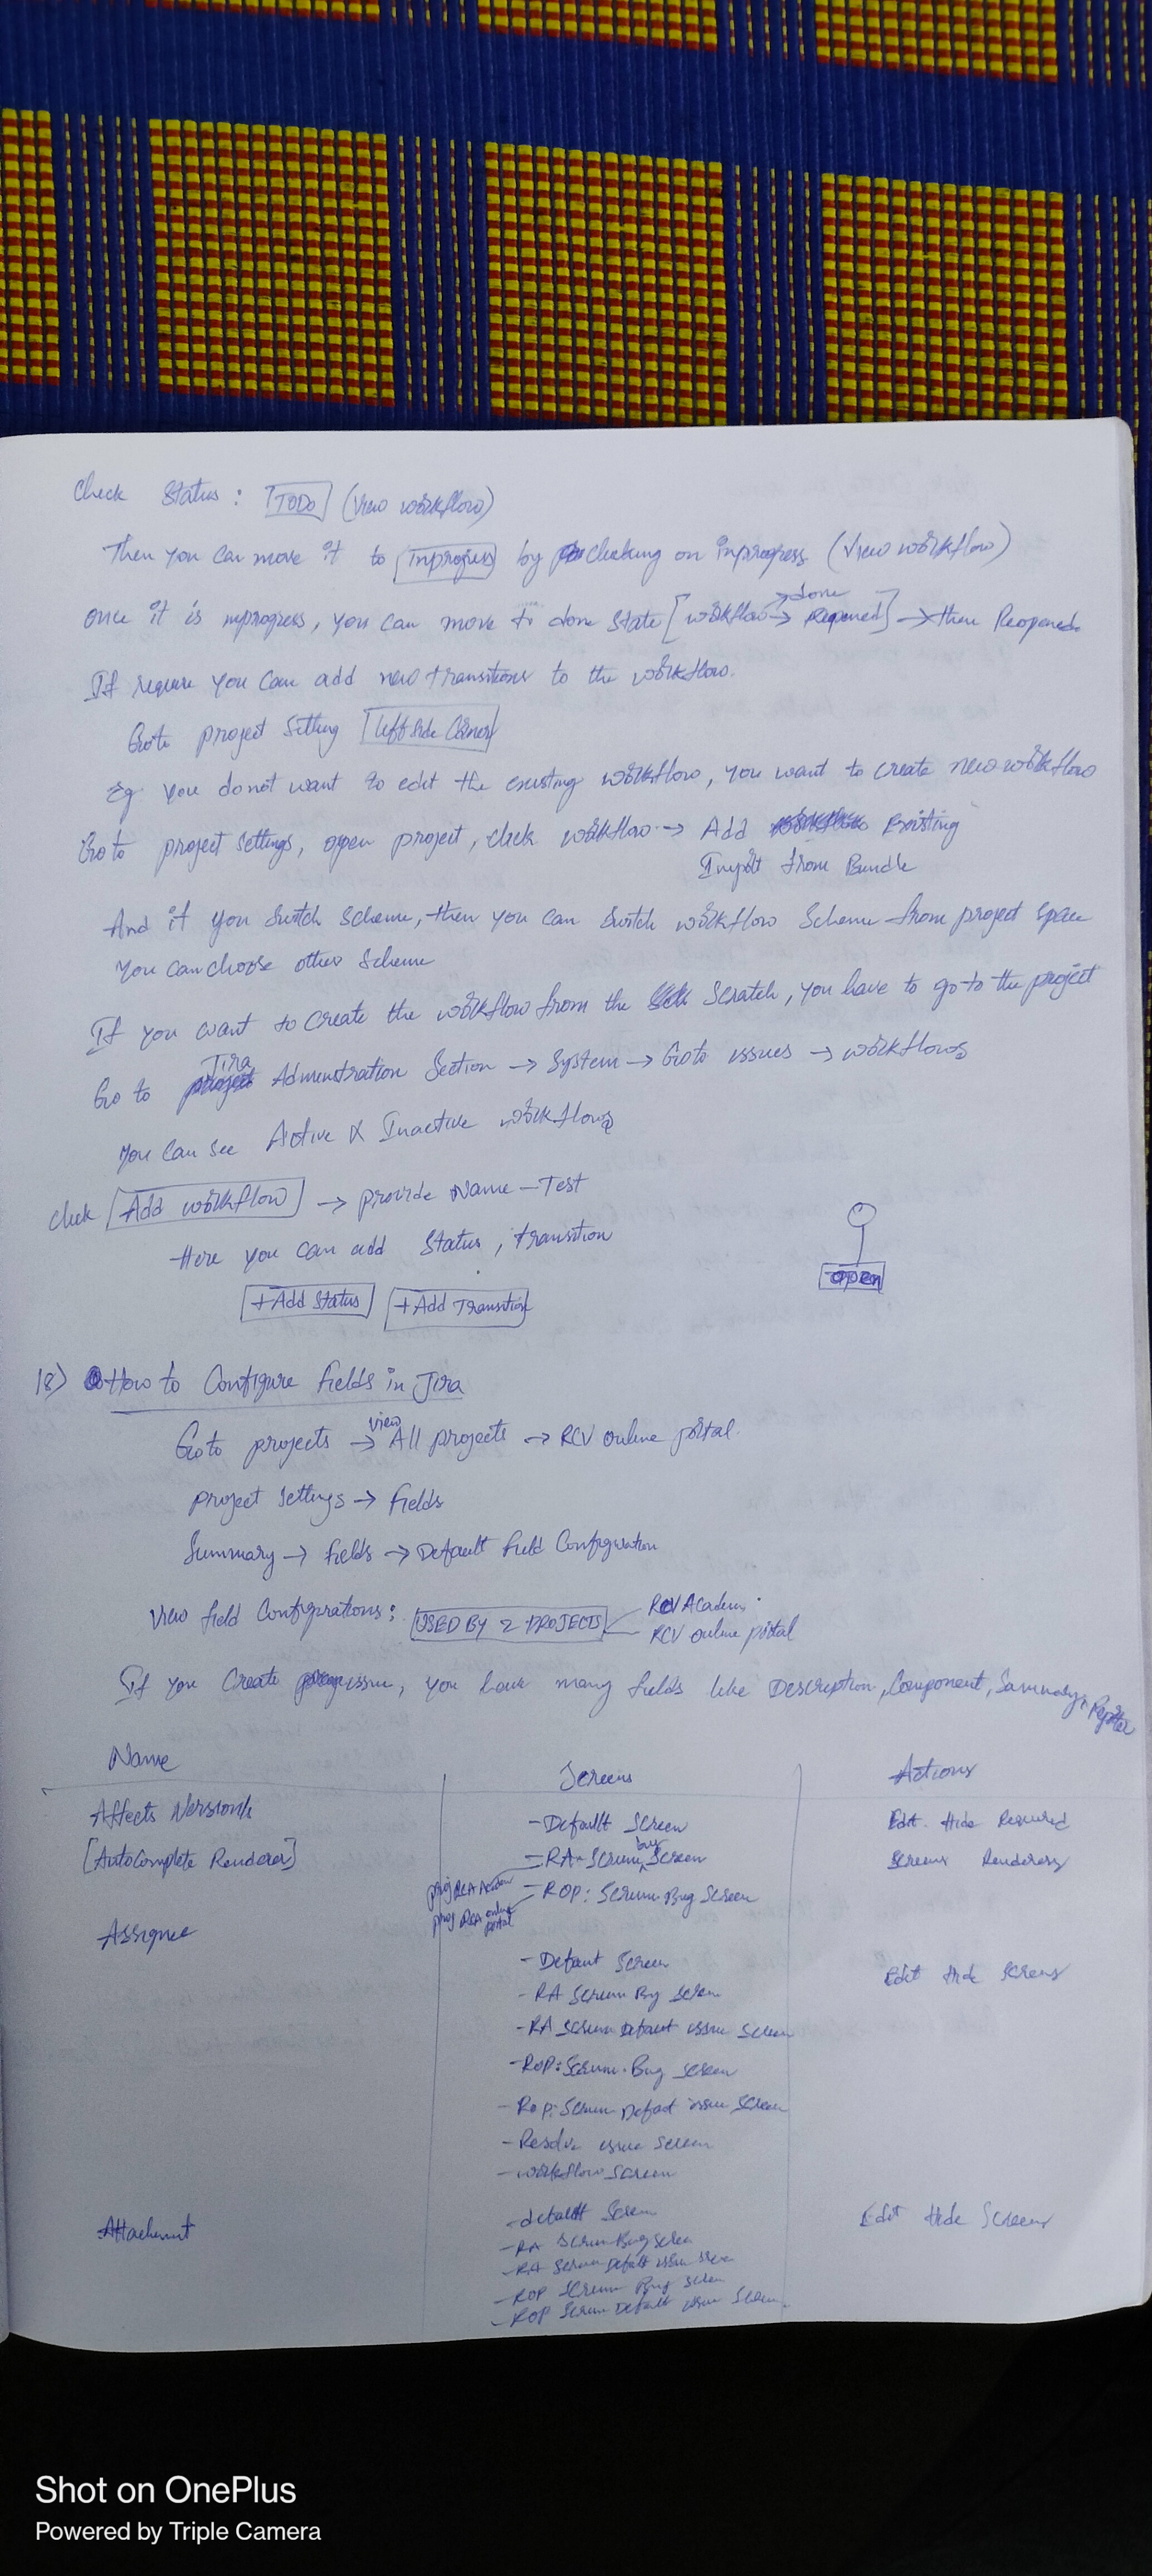 Check Status: TODO (View workflow)
Then you can move it to Inprogress by clicking on inprogress (View workflow)
once it is inprogress, you can move to done state [workflow → done → Reopened] → then Reopened
If require you can add new transitions to the workflow.
Goto project Setting [left side corner]
Eg you donot want to edit the existing workflow, you want to create new workflow
Go to project settings, open project, click workflow → Add Existing
Import from Bundle
And if you switch scheme, then you can switch workflow Scheme from project space
you can choose other scheme
If you want to create the workflow from the Scratch, you have to go to the project
Go to Jira Administration Section → System → Goto issues → workflows
you can see Active & Inactive workflows
Click Add workflow → provide Name - Test
Here you can add Status, transition
+Add Status +Add Transition
open
18) How to Configure fields in Jira
Goto projects → view All projects → RCV online portal.
project settings → fields
Summary → fields → Default field Configuration
View field Configurations: USED BY 2 PROJECTS
RCV Academy
RCV online portal
If you create issue, you have many fields like Description, Component, Summary,
Name Screens Actions
Affects Versions - Default Screen Edit Hide Required
[AutoComplete Renderer] - RA - Scrum bug Screen Screens Renderers
- ROP: Scrum Bug Screen
Assignee
- Default Screen Edit Hide Screens
- RA Scrum Bug Screen
- RA Scrum Default issue Screen
- ROP: Scrum Bug Screen
- ROP: Scrum Default issue Screen
- Resolve issue Screen
- workflow Screen
Attachment - default Screen Edit Hide Screens
- RA Scrum Bug Screen
- RA Scrum Default issue Screen
- ROP Scrum Bug Screen
- ROP Scrum Default issue Screen
Shot on OnePlus
Powered by Triple Camera